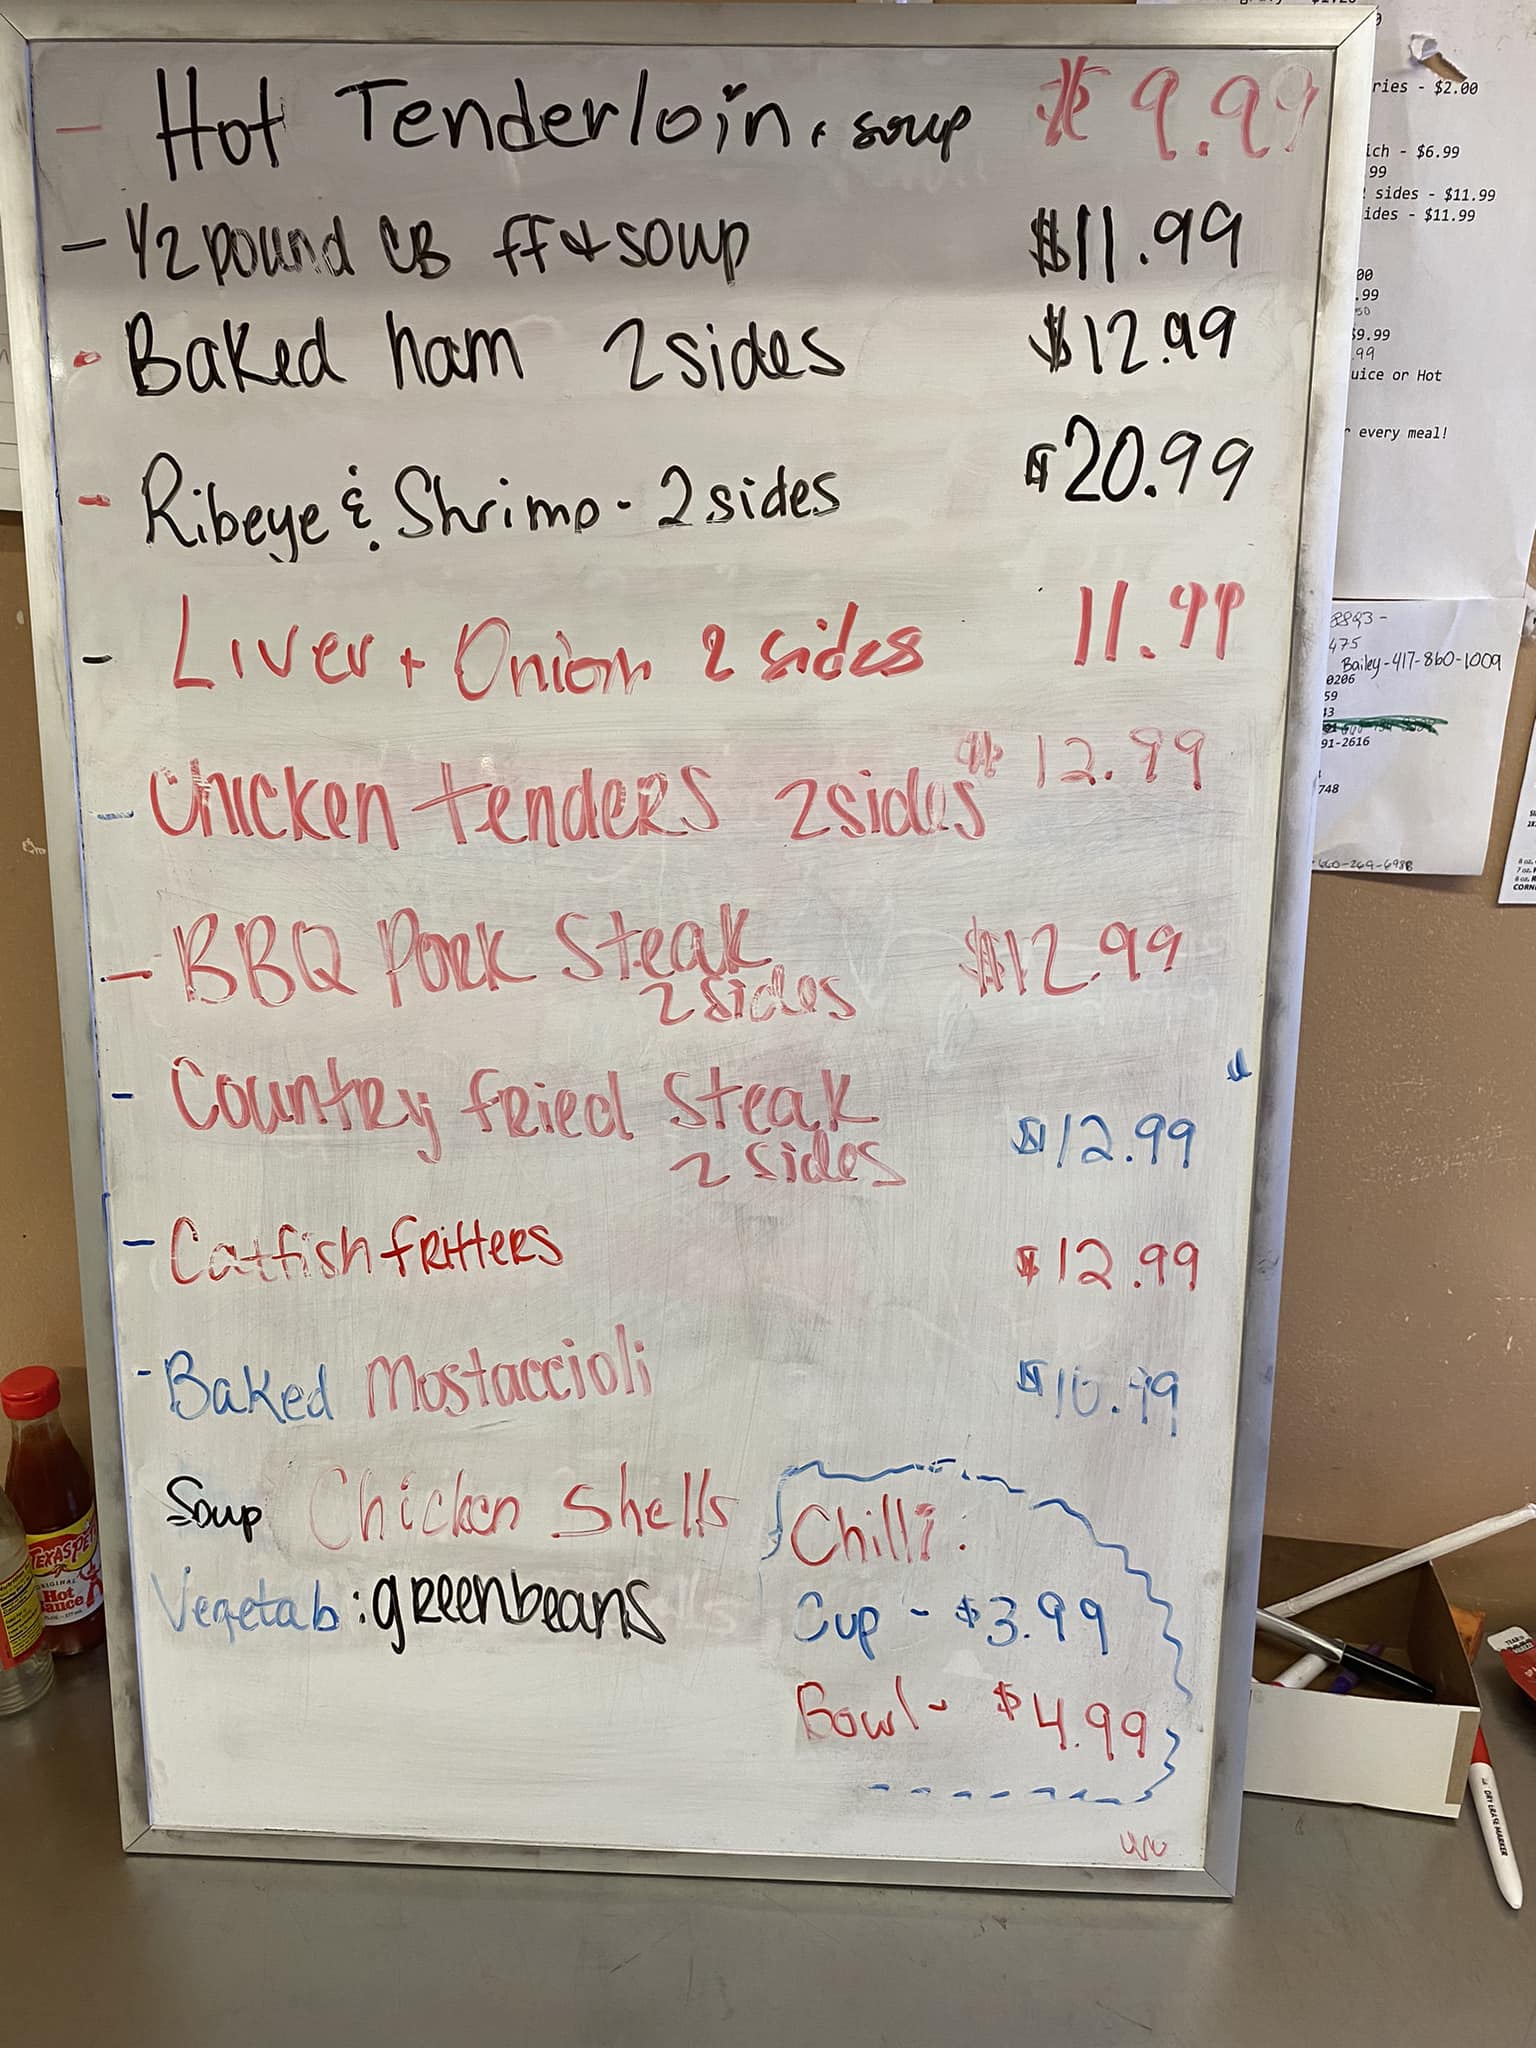 - Hot Tenderloin + soup $9.99
- 1/2 pound CB ff + soup $11.99
- Baked ham 2 sides $12.99
- Ribeye & Shrimp - 2 sides $20.99
- Liver + Onion 2 sides 11.99
- Chicken tenders 2 sides $12.99
- BBQ Pork Steak $12.99
2 sides
- Country fried Steak
2 sides $12.99
- Catfish fritters $12.99
- Baked Mostaccioli $10.99
Soup Chicken Shells
Vegetab: greenbeans
Chilli:
Cup - $3.99
Bowl - $4.99
ries - $2.00
ich - $6.99
.99
sides - $11.99
ides - $11.99
00
.99
50
$9.99
.99
uice or Hot
r every meal!
8893 -
475
Bailey-417-860-1009
0206
59
43
91-2616
748
660-269-6988
TEXAS PETE
ORIGINAL
Hot
Sauce
DRY ERASE MARKER